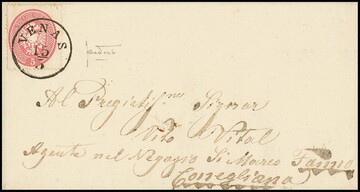 VENAS
15
5
Al Pregiatis.mo Signor
Vito Vital
Agente nel Negozio Di Marco Fanno
Conegliano